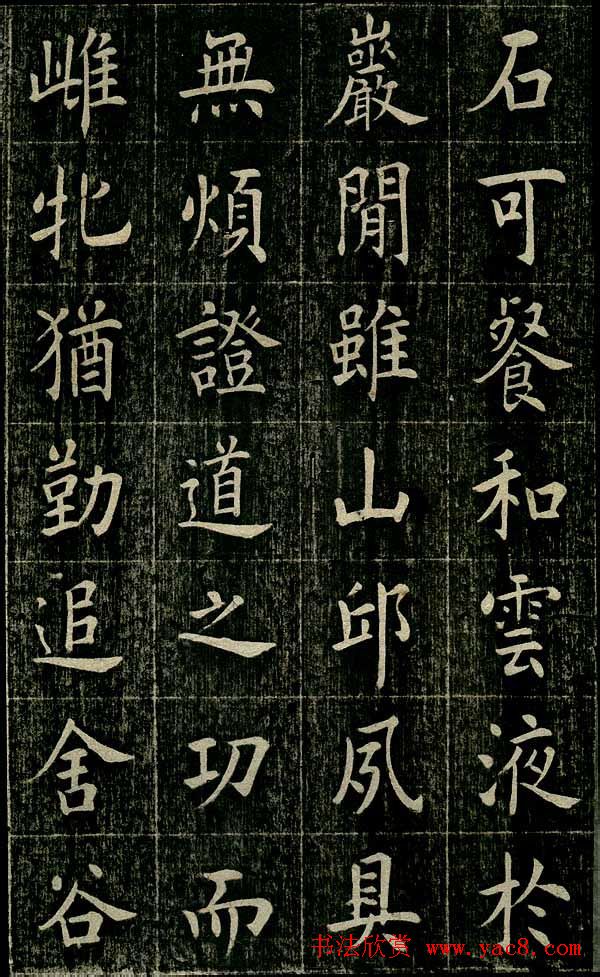 石可餐和雲液於
巖閒雖山邱夙具
無煩證道之功而
雌牝猶勤追舍谷
书法欣赏 www.yac8.com